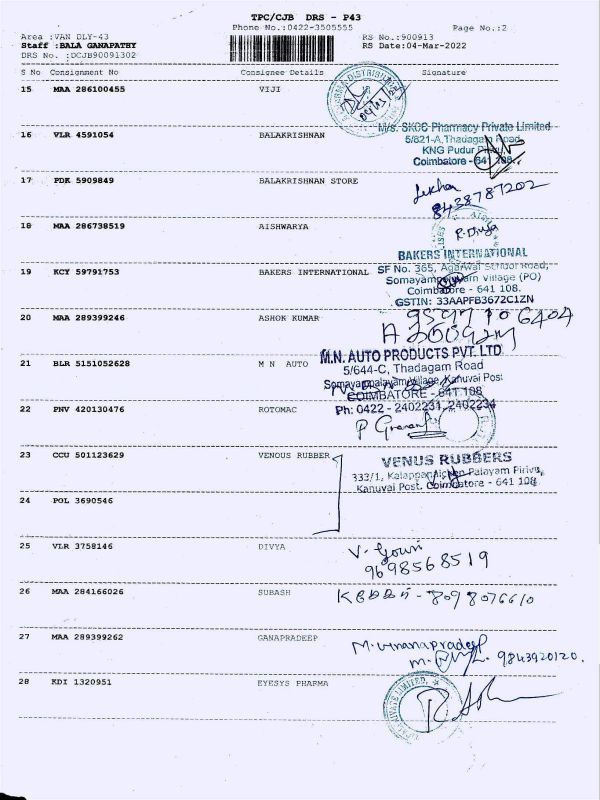 TPC/CJB DRS - P43
Phone No.:0422-3505555 Page No.:2
Area :VAN DLY-43 RS No.:900913
Staff :BALA GANAPATHY RS Date:04-Mar-2022
DRS No. :DCJB90091302
S No Consignment No Consignee Details Signature
15 MAA 286100455 VIJI
M/s. SKCC Pharmacy Private Limited
16 VLR 4591054 BALAKRISHNAN 5/821-A, Thadagam Road,
KNG Pudur
Coimbatore - 641 108.
17 PDK 5909849 BALAKRISHNAN STORE Lekha
8438787202
18 MAA 286738519 AISHWARYA R. Divya
BAKERS INTERNATIONAL
19 KCY 59791753 BAKERS INTERNATIONAL SF No. 365, Agarwal School Road,
Somayampalayam Village (PO)
Coimbatore - 641 108.
GSTIN: 33AAPFB3672C1ZN
20 MAA 289399246 ASHOK KUMAR
M.N. AUTO PRODUCTS PVT. LTD
21 BLR 5151052628 M N AUTO 5/644-C, Thadagam Road
Somayampalayam Village, Kanuvai Post
COIMBATORE - 641 108
22 PNV 420130476 ROTOMAC Ph: 0422 - 2402231, 2402234
23 CCU 501123629 VENOUS RUBBER VENUS RUBBERS
333/1, Kalappanaicken Palayam Pirivu,
Kanuvai Post, Coimbatore - 641 108.
24 POL 3690546
25 VLR 3758146 DIVYA V. Gowri
9698568519
26 MAA 284166026 SUBASH 8098076610
27 MAA 289399262 GANAPRADEEP
9843920120.
28 KDI 1320951 EYESYS PHARMA